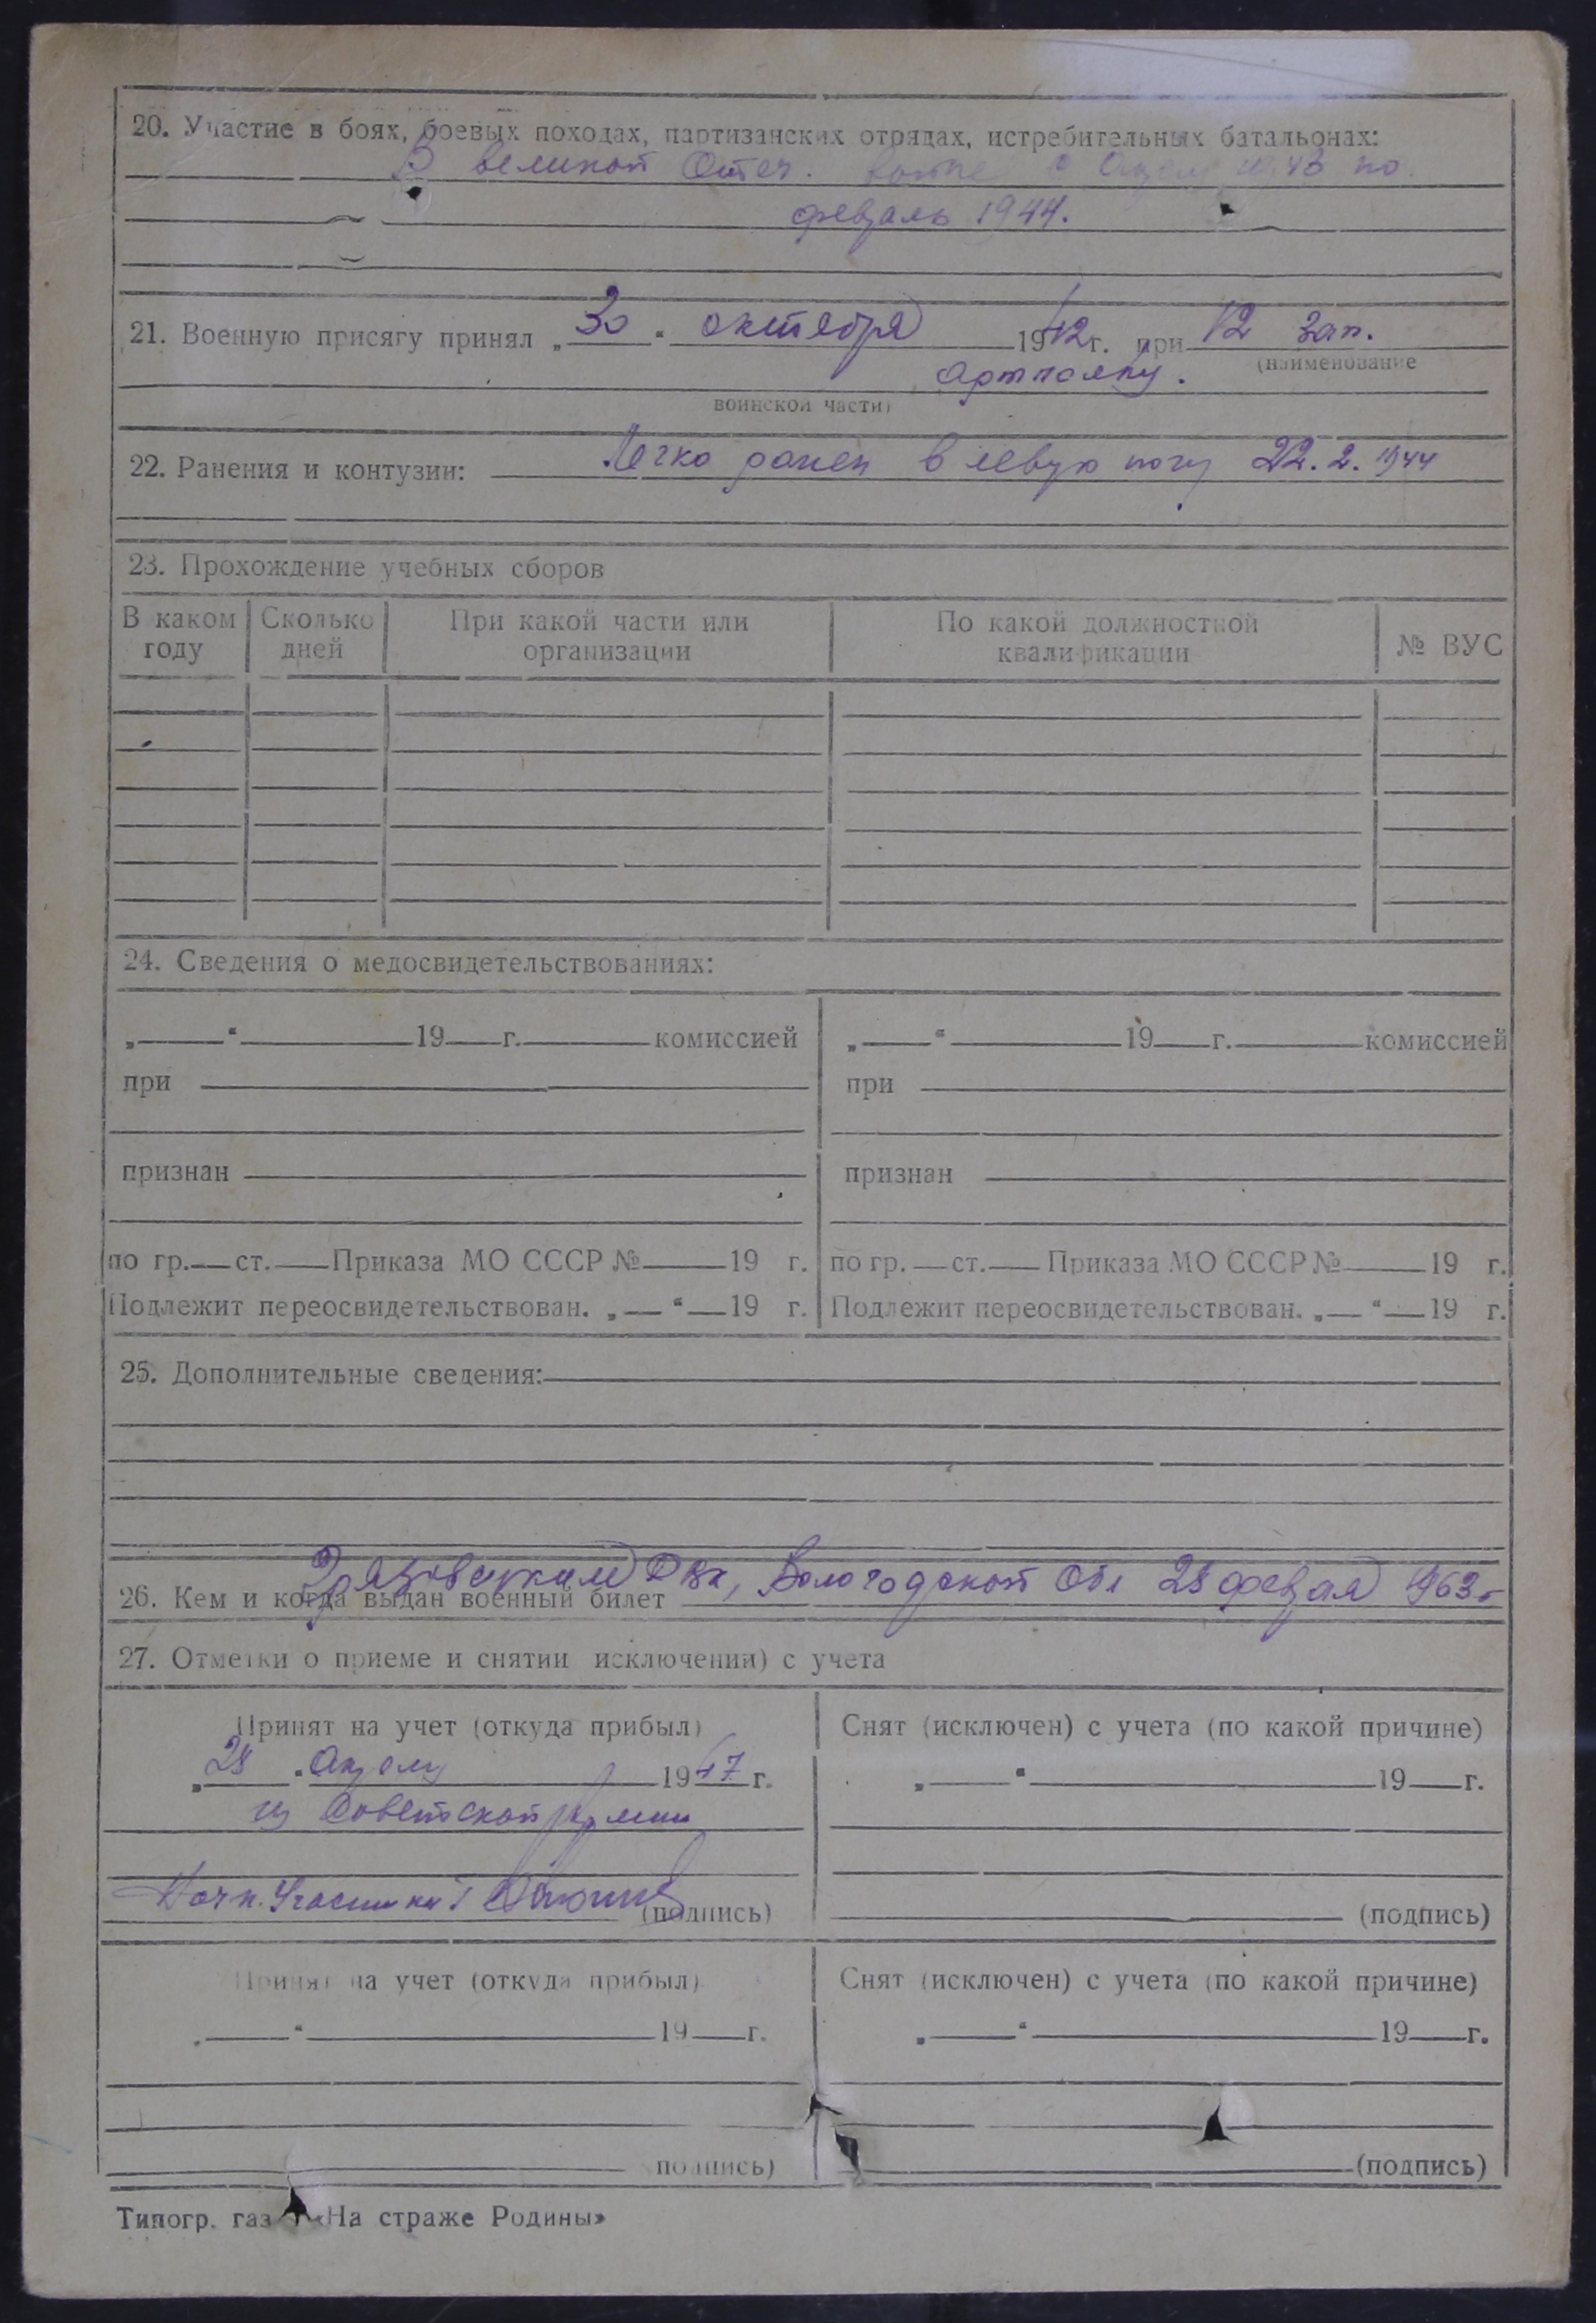 20. Участие в боях, боевых походах, партизанских отрядах, истребительных батальонах:
В великой Отеч. войне с 1943 по
февраль 1944.
21. Военную присягу принял „30“ октября 1942г. при 12 зап.
(наименование
артполку.
воинской части)
22. Ранения и контузии: Легко ранен в левую ногу 22.2.1944
23. Прохождение учебных сборов
В каком году Сколько дней При какой части или организации По какой должностной квалификации № ВУС
24. Сведения о медосвидетельствованиях:
„ “ 19 г. комиссией „ “ 19 г. комиссией
при при
признан признан
по гр. ст. Приказа МО СССР № 19 г. по гр. ст. Приказа МО СССР № 19 г.
Подлежит переосвидетельствован. „ “ 19 г. Подлежит переосвидетельствован. „ “ 19 г.
25. Дополнительные сведения:
26. Кем и когда выдан военный билет Грязовецким РВК, Вологодской обл 28 февраля 1963г
27. Отметки о приеме и снятии исключении) с учета
Принят на учет (откуда прибыл) Снят (исключен) с учета (по какой причине)
„28“ 1947 г. „ “ 19 г.
из Советской Армии
Нач. участка
(подпись) (подпись)
Принят на учет (откуда прибыл) Снят (исключен) с учета (по какой причине)
„ “ 19 г. „ “ 19 г.
подпись) (подпись)
Типогр. газ «На страже Родины»